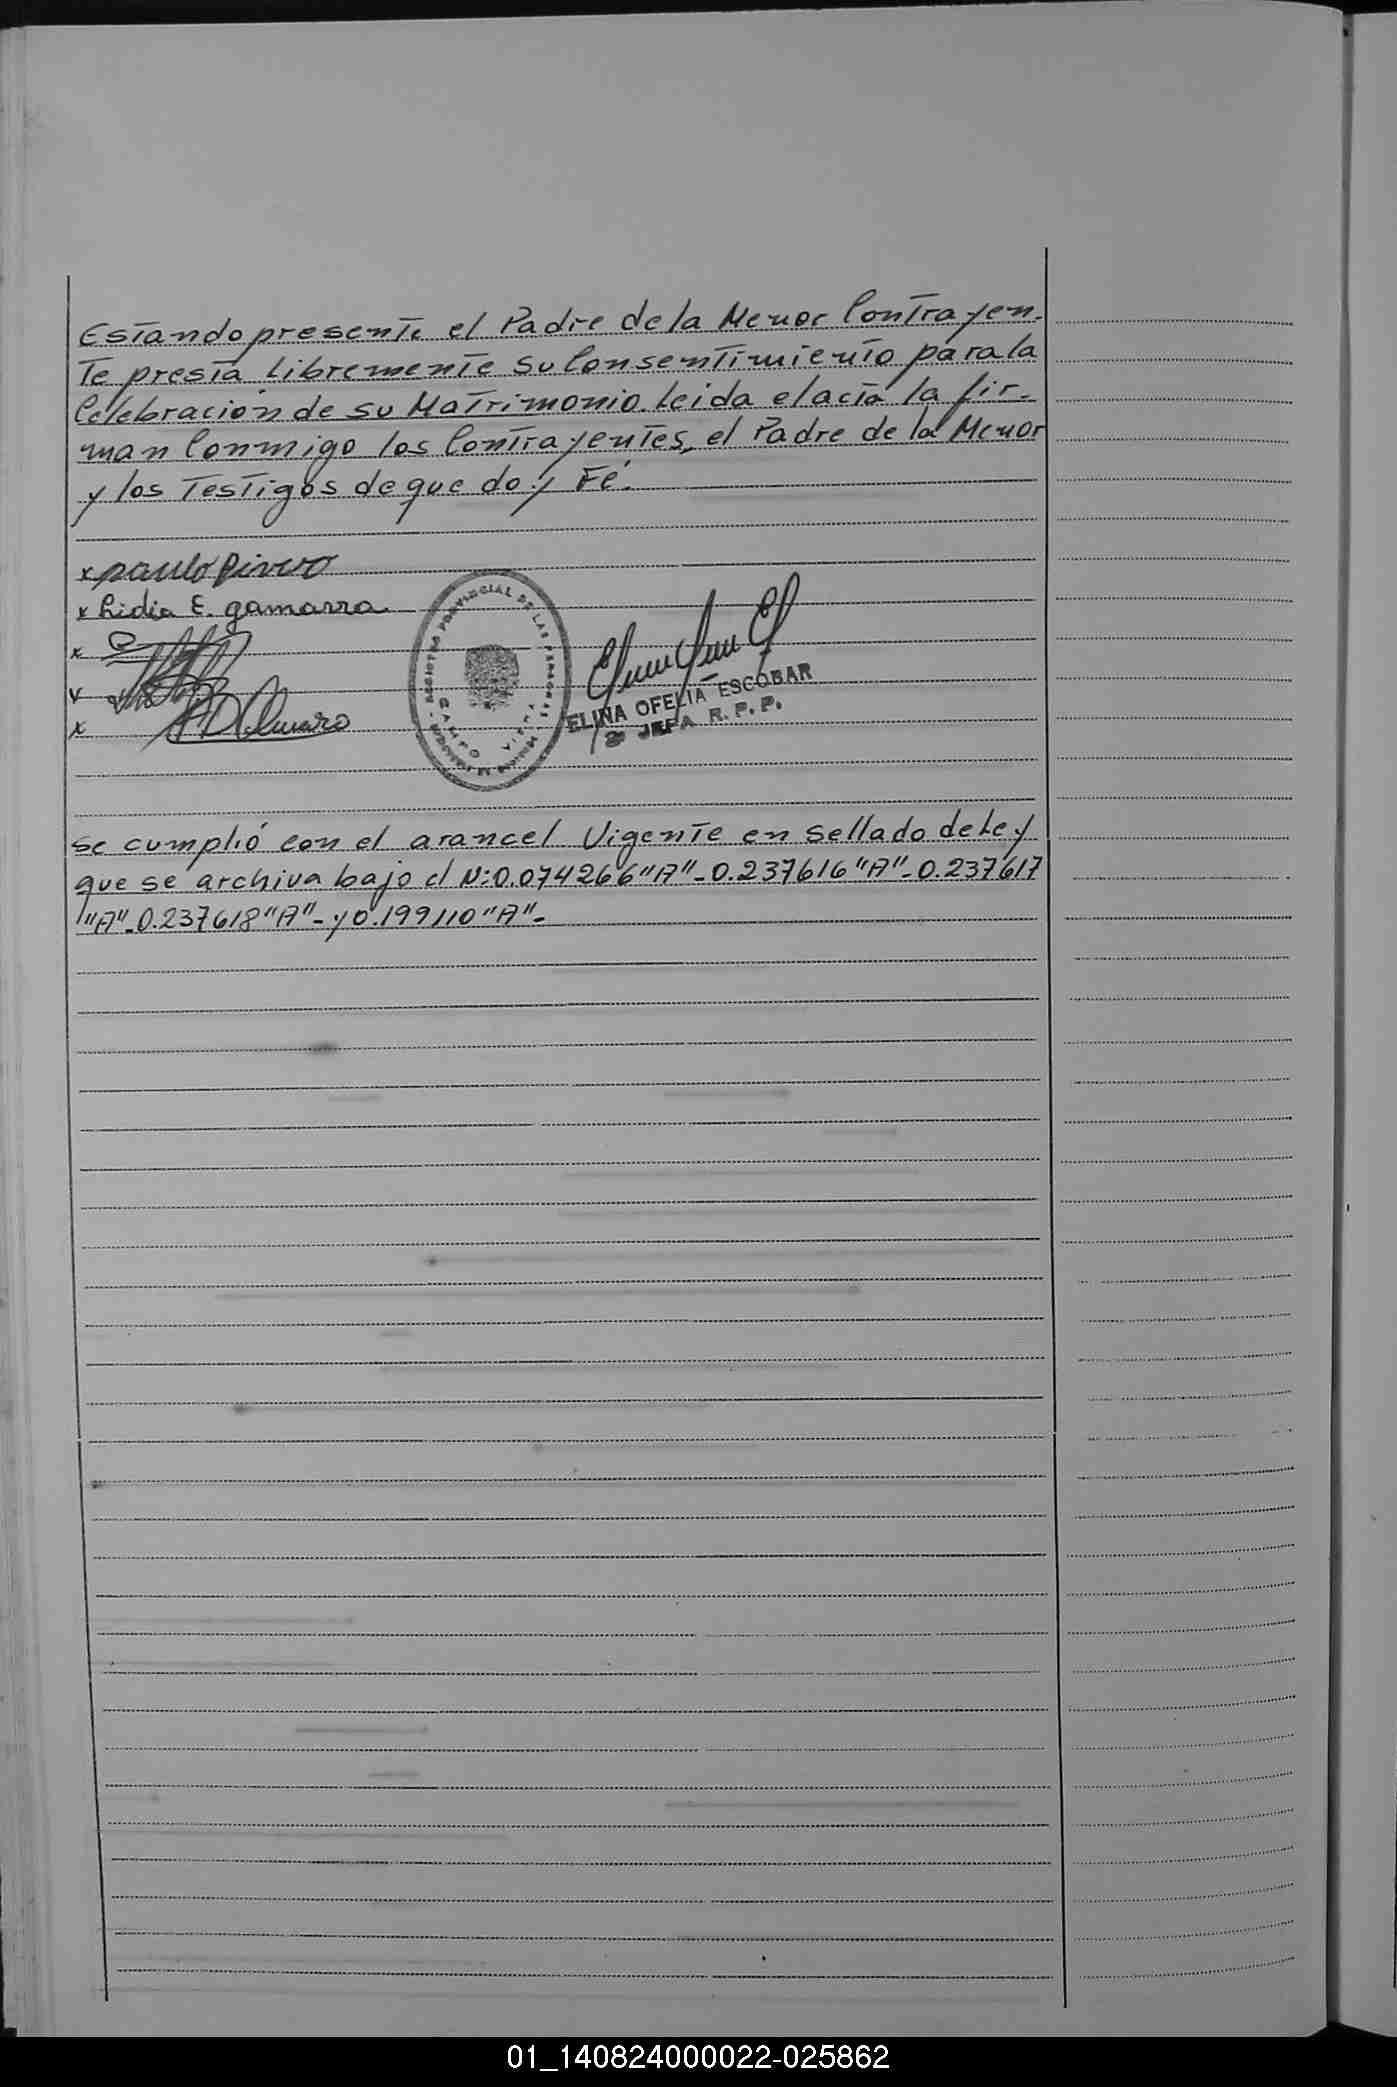 Estando presente el Padre de la Menor Contrayen-
te presta libremente su Consentimiento para la
Celebración de su Matrimonio. leida el acta la fir-
man Conmigo los Contrayentes, el Padre de la Menor
y los Testigos de que doy Fé.
x paulo Rivero
x Lidia E. gamarra
x
x
x
REGISTRO PROVINCIAL DE LAS PERSONAS
CAMPO VIERA
ELINA OFELIA ESCOBAR
2º JEFA R. P. P.
se cumplió con el arancel Vigente en sellado de Ley
que se archiva bajo el Nº:0.074266 "A"-0.237616 "A"-0.237617
"A"-0.237618 "A"- y 0.199110 "A"-
01_140824000022-025862